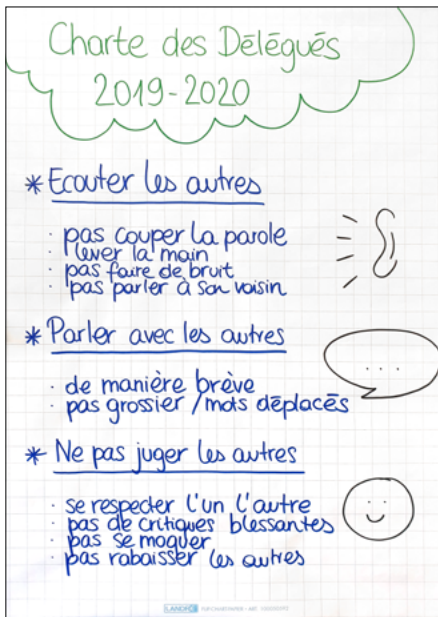 Charte des Délégués
2019-2020
* Ecouter les autres
· pas couper la parole
· lever la main
· pas faire de bruit
· pas parler à son voisin
* Parler avec les autres
...
· de manière brève
· pas grossier / mots déplacés
* Ne pas juger les autres
· se respecter l'un l'autre
· pas de critiques blessantes
· pas se moquer
· pas rabaisser les autres
LANDRÉ